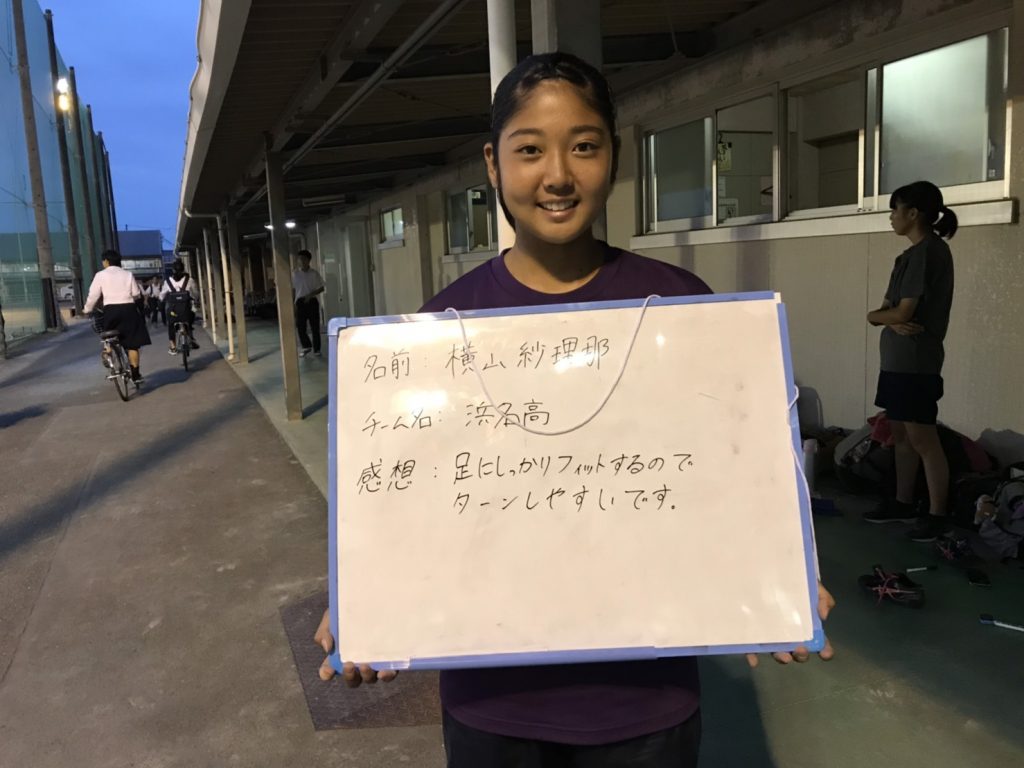 名前：横山紗理那
チーム名：浜名高
感想：足にしっかりフィットするので
ターンしやすいです。